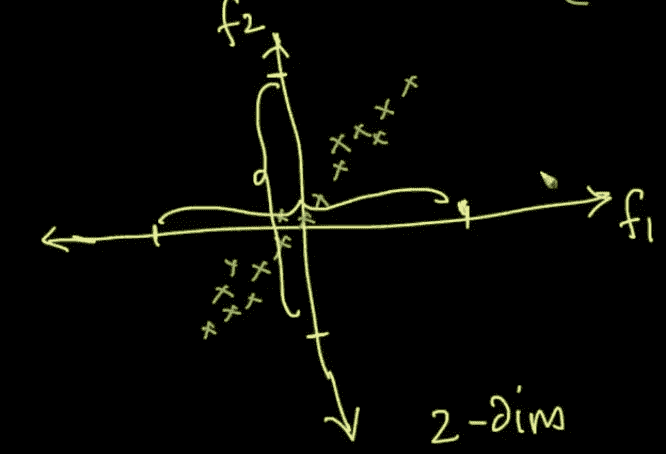 f2
f1
2-dims